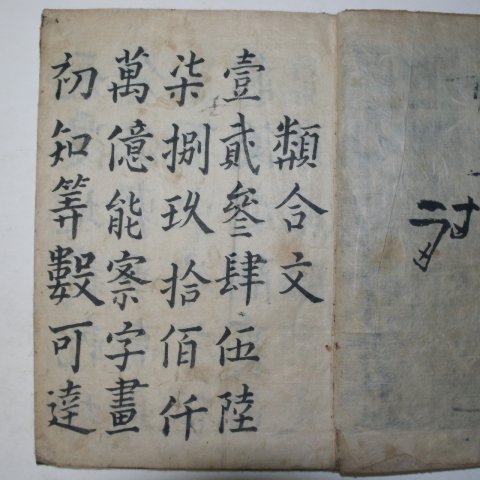 類合文
壹貳參肆伍陸
柒捌玖拾佰仟
萬億能察字畫
初知筭數可達